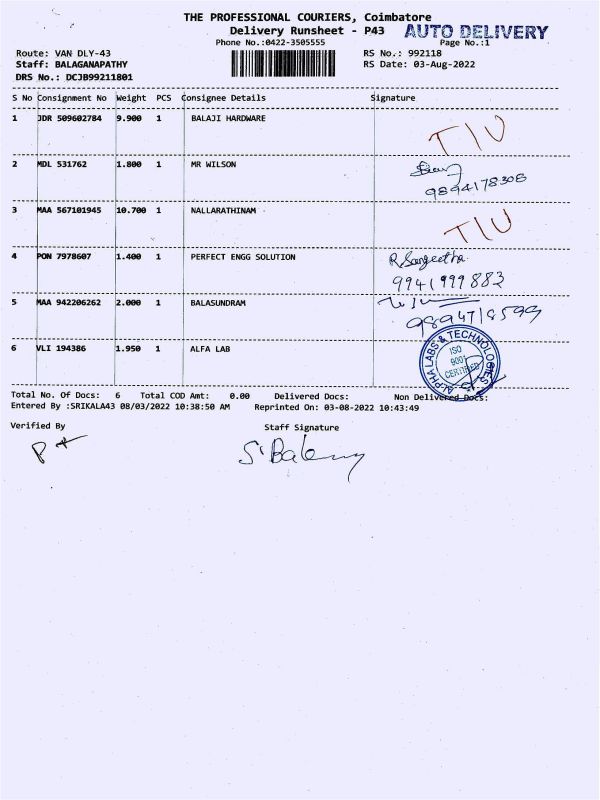 THE PROFESSIONAL COURIERS, Coimbatore
Delivery Runsheet - P43
AUTO DELIVERY
Phone No.:0422-3505555
Page No.:1
Route: VAN DLY-43
RS No.: 992118
Staff: BALAGANAPATHY
RS Date: 03-Aug-2022
DRS No.: DCJB99211801
S No Consignment No Weight PCS Consignee Details Signature
1 JDR 509602784 9.900 1 BALAJI HARDWARE
T/U
2 MDL 531762 1.800 1 MR WILSON
9894178308
3 MAA 567101945 10.700 1 NALLARATHINAM
T/U
4 PON 7978607 1.400 1 PERFECT ENGG SOLUTION
R.Sangeetha
9941999883
5 MAA 942206262 2.000 1 BALASUNDRAM
9894718599
6 VLI 194386 1.950 1 ALFA LAB
ALPHA LABS & TECHNOLOGIES
ISO
9001
CERTIFIED
Total No. Of Docs: 6 Total COD Amt: 0.00 Delivered Docs: Non Delivered Docs:
Entered By :SRIKALA43 08/03/2022 10:38:50 AM Reprinted On: 03-08-2022 10:43:49
Verified By
Staff Signature